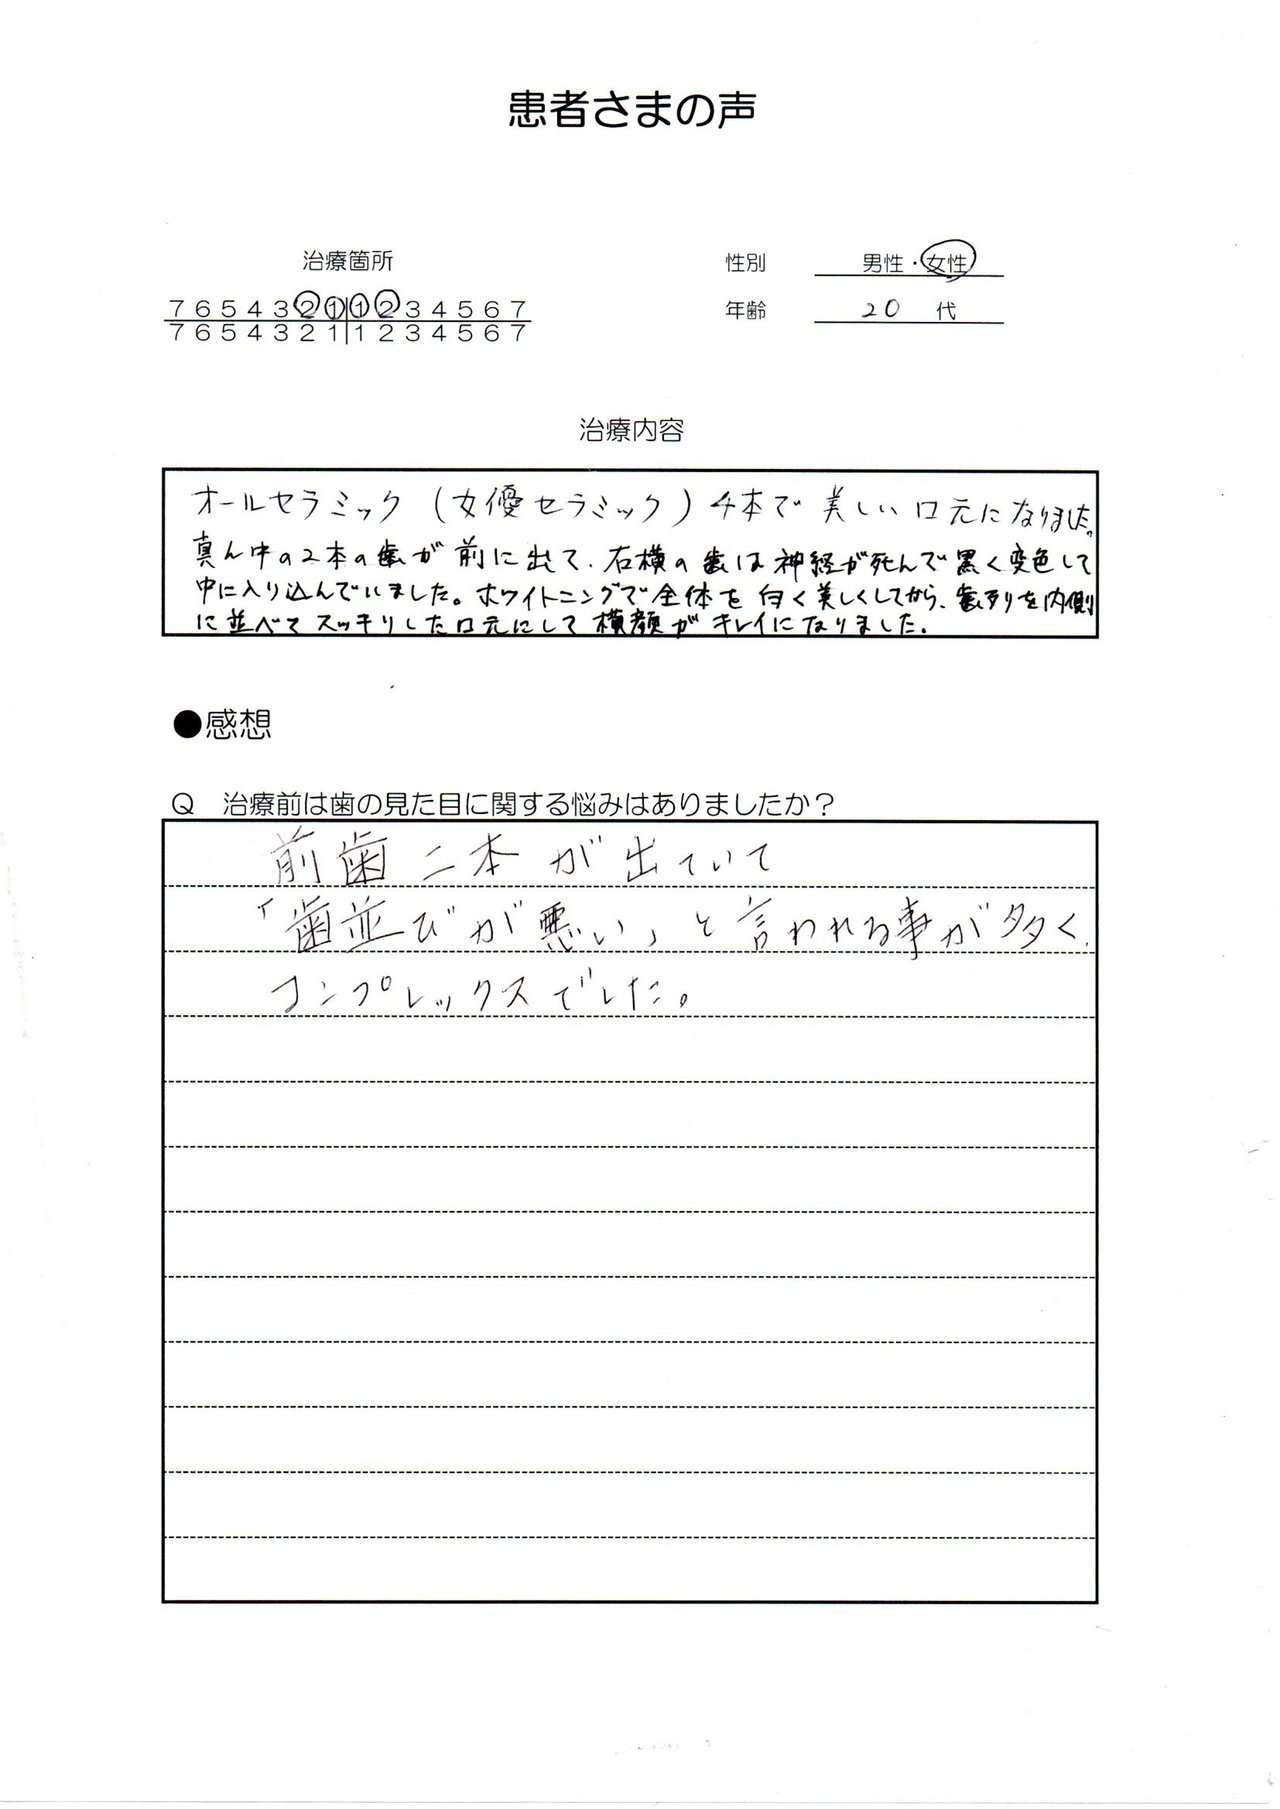 患者さまの声
治療箇所
性別 男性・女性
7654321|1234567
7654321|1234567
年齢 20 代
治療内容
オールセラミック(女優セラミック)4本で美しい口元になりました。
真ん中の2本の歯が前に出て、右横の歯は神経が死んで黒く変色して
中に入り込んでいました。ホワイトニングで全体を白く美しくしてから、歯列を内側
に並べてスッキリした口元にして横顔がキレイになりました。
●感想
Q 治療前は歯の見た目に関する悩みはありましたか?
前歯二本が出ていて
「歯並びが悪い」と言われる事が多く、
コンプレックスでした。